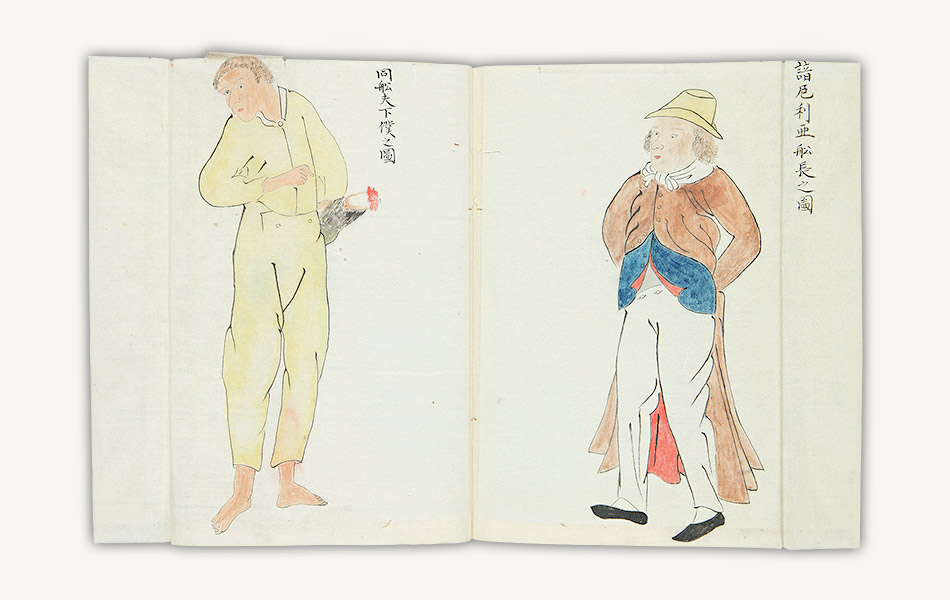 諳厄利亜舩長之圖
同舩夫下僕之圖